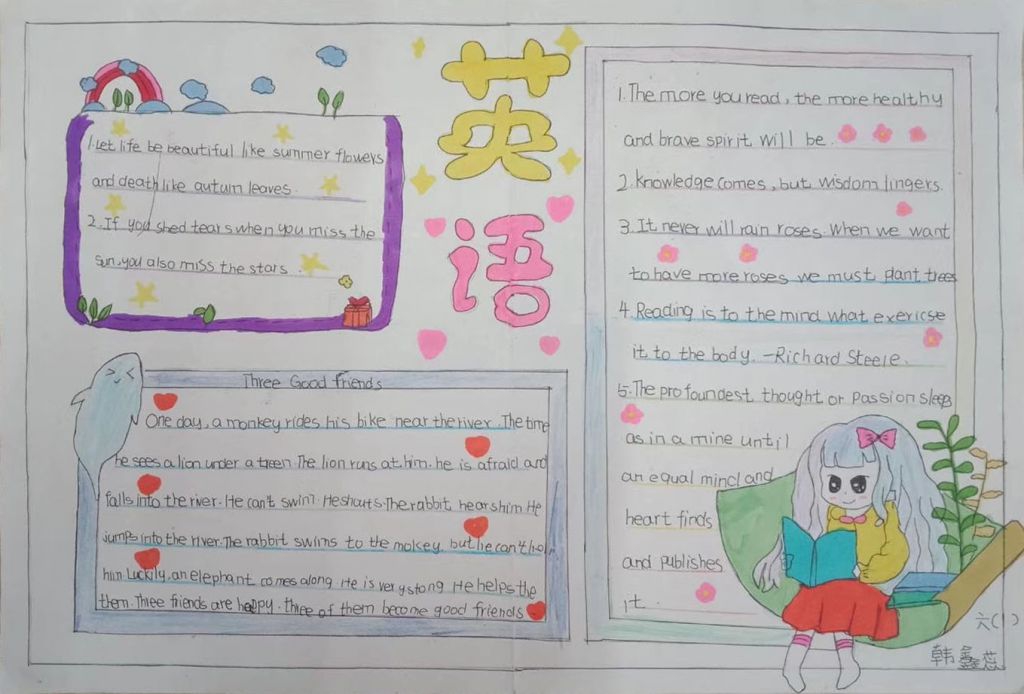 英语
1.Let life be beautiful like summer flowers
and death like autum leaves.
2.If you shed tears when you miss the
sun,you also miss the stars.
Three Good friends
One day, a monkey rides his bike near the river. The time
he sees a lion under a treen. The lion runs at him. he is afraid and
falls into the river. He can't swim. He shouts. The rabbit hears him. He
jumps into the river. The rabbit swins to the mokey. but he can't
him Luckily, an elephant comes along He is very stong He helps the
them. Three friends are happy. three of them become good friends
1.The more you read, the more healthy
and brave spirit will be.
2.Knowledge comes, but wisdom lingers.
3.It never will rain roses. When we want
to have more roses we must plant trees
4.Reading is to the mind what exericse
it to the body. -Richard Steele.
5.The profoundest thought or passion sleeps
as in a mine until
an equal mind and
heart finds
and publishes
it.
六(1)
韩鑫蕊